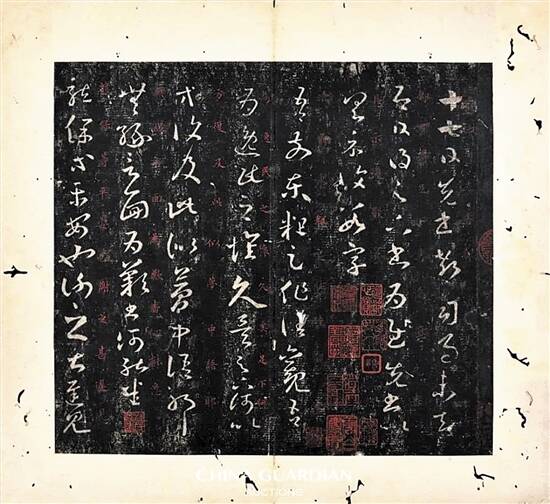 十七日先書郗司馬未去
即日得足下書為慰先書以
具示復數字
吾前東粗足作佳觀吾
為逸民之懷久矣足下何以
方復及此似夢中語耶
無緣言面為歎書何能悉
龍保等平安也謝之甚遲見
CHINA GUARDIAN
AUCTIONS